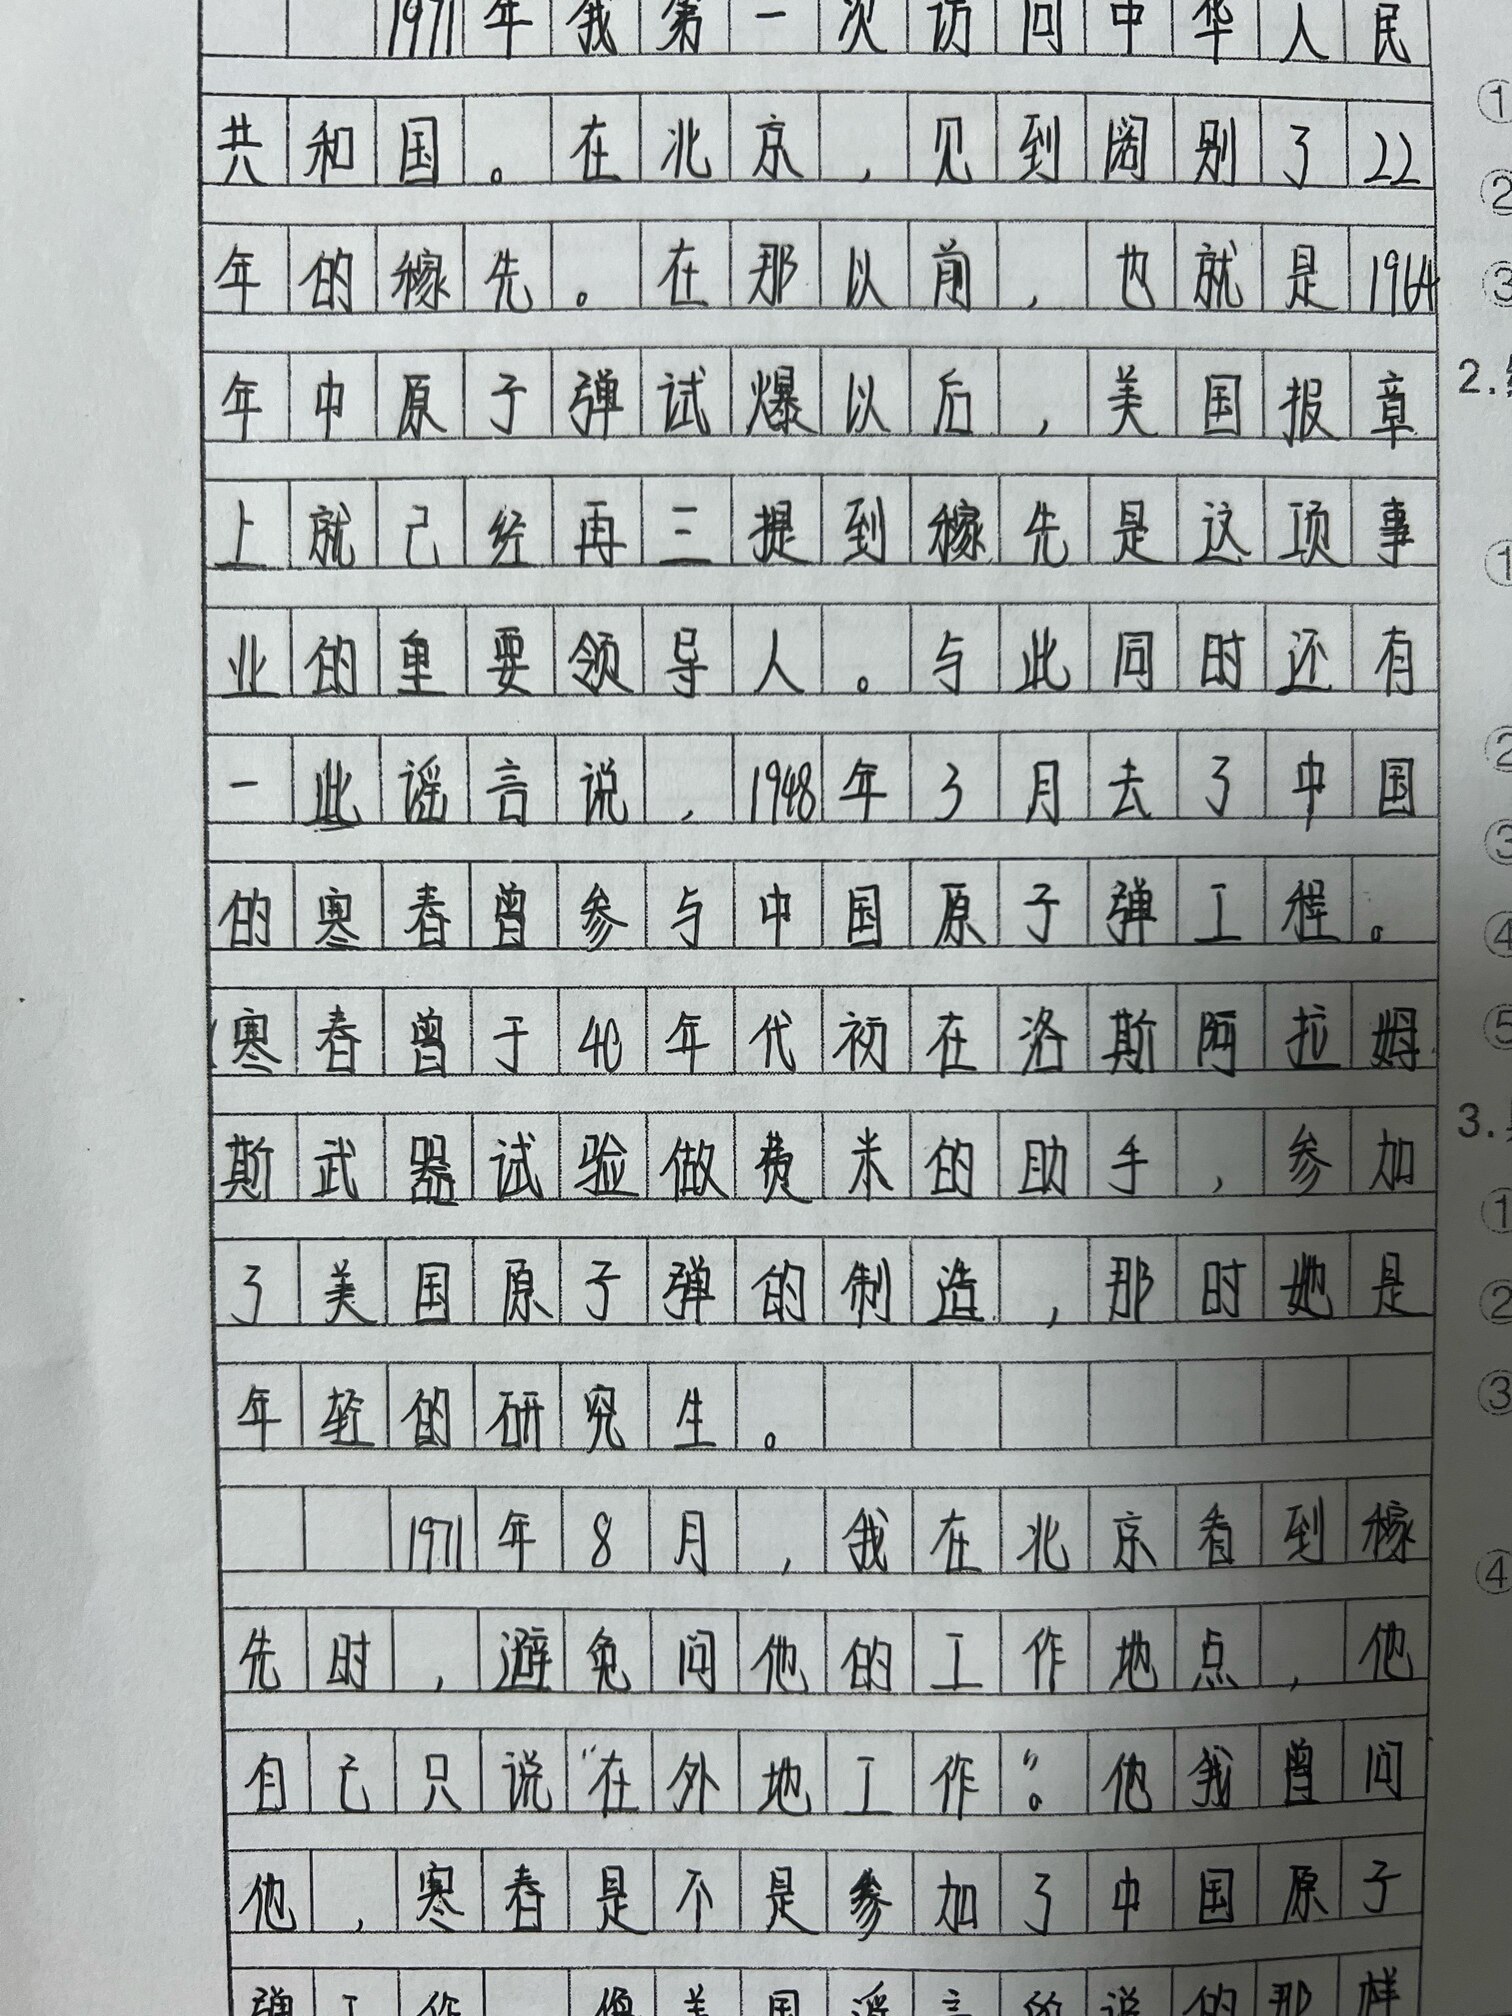 1971年我第一次访问中华人民
共和国。在北京,见到阔别了22
年的稼先。在那以前,也就是1964
年中原子弹试爆以后,美国报章
上就已经再三提到稼先是这项事
业的重要领导人。与此同时还有
一些谣言说,1948年3月去了中国
的寒春曾参与中国原子弹工程。
(寒春曾于40年代初在洛斯阿拉姆
斯武器试验做费米的助手,参加
了美国原子弹的制造,那时她是
年轻的研究生。
1971年8月,我在北京看到稼
先时,避免问他的工作地点,他
自己只说“在外地工作”。他我曾问
他,寒春是不是参加了中国原子
弹工作 像美国谣言的说的那样
①
②
③
2.
①
②
③
④
⑤
3.
①
②
③
④